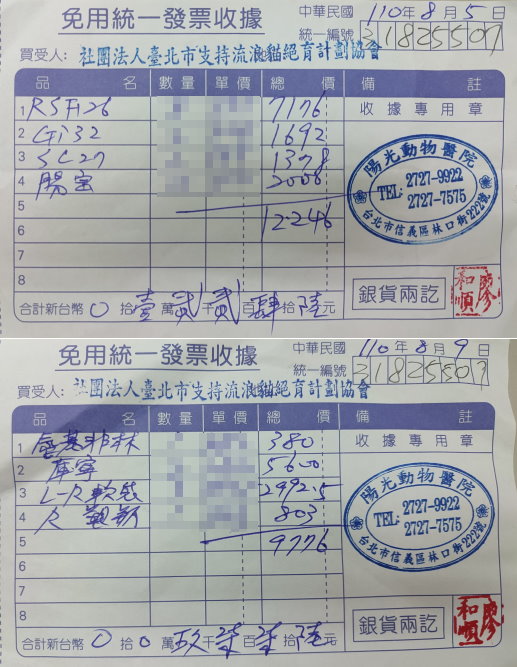 免用統一發票收據
中華民國 110年8月5日
統一編號 21825507
買受人: 社團法人臺北市支持流浪貓絕育計劃協會
品名 數量 單價 總價 備註
1 RSFi26 7176 收據專用章
2 Gi32 1692
3 SC27 1378
4 腸宝 2000
5 12246
6
7
8
陽光動物醫院
TEL: 2727-9922
2727-7575
台北市信義區林口街222號
銀貨兩訖
廖和順
合計新台幣 0 拾壹萬貳千貳百肆拾陸元
免用統一發票收據
中華民國 110年8月9日
統一編號 21825507
買受人: 社團法人臺北市支持流浪貓絕育計劃協會
品名 數量 單價 總價 備註
1 380 收據專用章
2 5600
3 L-R 2992.5
4 803
5 9776
6
7
8
陽光動物醫院
TEL: 2727-9922
2727-7575
台北市信義區林口街222號
銀貨兩訖
廖和順
合計新台幣 0 拾 0 萬玖千柒百柒拾陸元